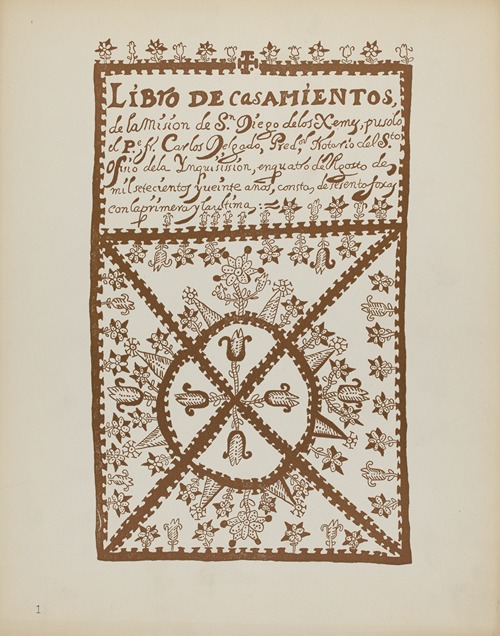 LIBRO DE CASAMIENTOS,
de la Mision de Sn Diego de los Xemes, pusolo
el Pe. fr. Carlos Delgado, Pred.or Notario del Sto
ofisio dela Ynquisision, en quatro de Agosto de
mil setecientos y veinte años, consta, de sesenta foxas
con la primera y la ultima :~
1